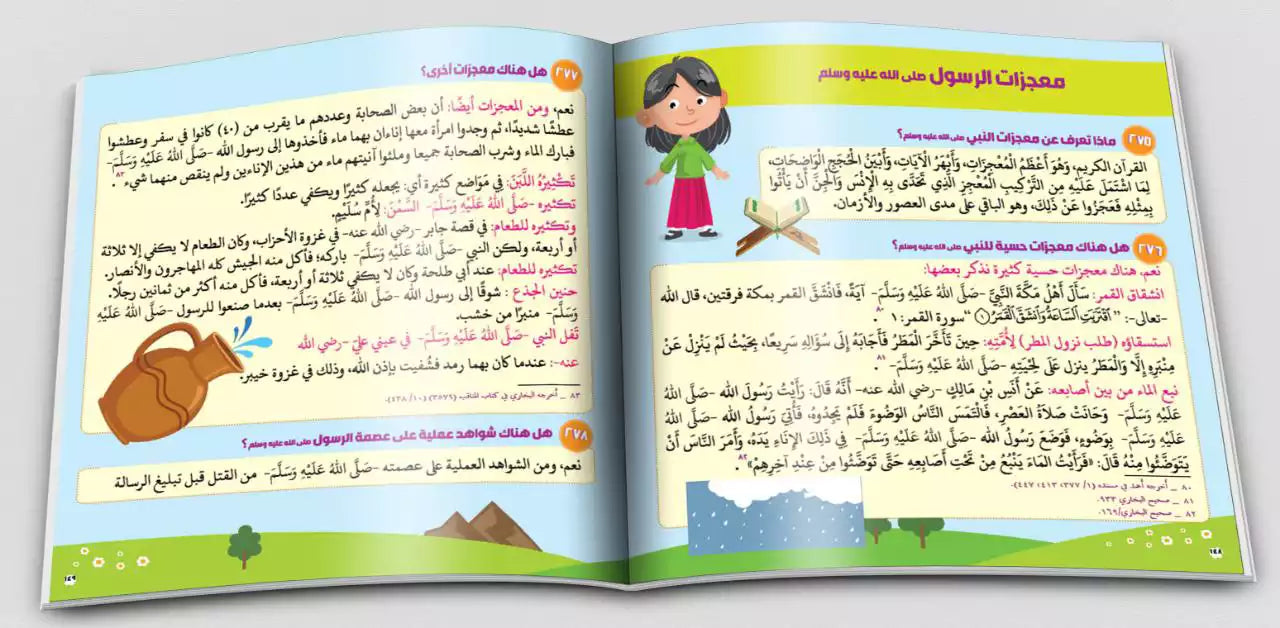 معجزات الرسول صلى الله عليه وسلم
٢٧٥ ماذا تعرف عن معجزات النبي صلى الله عليه وسلم؟
القرآن الكريم، وَهُوَ أَعْظَمُ الْمُعْجِزَاتِ، وَأَبْهَرُ الْآيَاتِ، وَأَبْيَنُ الْحُجَجِ الْوَاضِحَاتِ،
لِمَا اشْتَمَلَ عَلَيْهِ مِنَ التَّرْكِيبِ الْمُعْجِزِ الَّذِي تَحَدَّى بِهِ الْإِنْسَ وَالْجِنَّ أَنْ يَأْتُوا
بِمِثْلِهِ فَعَجَزُوا عَنْ ذَلِكَ، وهو الباقي على مدى العصور والأزمان.
٢٧٦ هل هناك معجزات حسية للنبي صلى الله عليه وسلم؟
نعم، هناك معجزات حسية كثيرة نذكر بعضها:
انشقاق القمر: سَأَلَ أَهْلُ مَكَّةَ النَّبِيَّ -صَلَّى اللَّهُ عَلَيْهِ وَسَلَّمَ- آيَةً، فَانْشَقَّ القمر بمكة فرقتين، قال الله
-تعالى-: "اقْتَرَبَتِ السَّاعَةُ وَانْشَقَّ الْقَمَرُ ۝١" سورة القمر: ١ ٨٠.
استسقاؤه (طلب نزول المطر) لِأُمَّتِهِ: حِينَ تَأَخَّرَ الْمَطَرُ فَأَجَابَهُ إِلَى سُؤَالِهِ سَرِيعًا، بِحَيْثُ لَمْ يَنْزِلْ عَنْ
مِنْبَرِهِ إِلَّا وَالْمَطَرُ ينزل عَلَى لِحْيَتِهِ -صَلَّى اللَّهُ عَلَيْهِ وَسَلَّمَ- ٨١.
نبع الماء من بين أصابعه: عَنْ أَنَسِ بْنِ مَالِكٍ -رضي الله عنه- أَنَّهُ قَالَ: رَأَيْتُ رَسُولَ الله -صَلَّى اللهُ
عَلَيْهِ وَسَلَّمَ- وَحَانَتْ صَلَاةُ العَصْرِ، فَالْتَمَسَ النَّاسُ الوَضُوءَ فَلَمْ يَجِدُوهُ، فَأُتِيَ رَسُولُ الله -صَلَّى اللهُ
عَلَيْهِ وَسَلَّمَ- بِوَضُوءٍ، فَوَضَعَ رَسُولُ الله -صَلَّى اللَّهُ عَلَيْهِ وَسَلَّمَ- فِي ذَلِكَ الإِنَاءِ يَدَهُ، وَأَمَرَ النَّاسَ أَنْ
يَتَوَضَّئُوا مِنْهُ قَالَ: «فَرَأَيْتُ المَاءَ يَنْبُعُ مِنْ تَحْتِ أَصَابِعِهِ حَتَّى تَوَضَّئُوا مِنْ عِنْدِ آخِرِهِمْ» ٨٢.
٨٠ _ أخرجه أحمد في مسنده (١/ ٣٧٧، ٤١٣، ٤٤٧).
٨١ _ صحيح البخاري ٩٣٣.
٨٢ _ صحيح البخاري/١٦٩.
١٤٨
٢٧٧ هل هناك معجزات أخرى؟
نعم، ومن المعجزات أيضًا: أن بعض الصحابة وعددهم ما يقرب من (٤٠) كانوا في سفر وعطشوا
عطشًا شديدًا، ثم وجدوا امرأة معها إناءان بهما ماء فأخذوها إلى رسول الله -صَلَّى اللَّهُ عَلَيْهِ وَسَلَّمَ-
فبارك الماء وشرب الصحابة جميعا وملئوا آنيتهم ماء من هذين الإناءين ولم ينقص منهما شيء ٨٣.
تَكْثِيرُهُ اللَّبَنَ: في مَوَاضع كثيرة أي: يجعله كثيرًا ويكفي عددًا كثيرًا.
تكثيره -صَلَّى اللَّهُ عَلَيْهِ وَسَلَّمَ- السَّمْنَ: لِأُمِّ سُلَيْمٍ.
وتكثيره للطعام: في قصة جابر -رضي الله عنه- في غزوة الأحزاب، وكان الطعام لا يكفي إلا ثلاثة
أو أربعة، ولكن النبي -صَلَّى اللَّهُ عَلَيْهِ وَسَلَّمَ- باركه؛ فأكل منه الجيش كله المهاجرون والأنصار.
تكثيره للطعام: عند أبي طلحة وكان لا يكفي ثلاثة أو أربعة، فأكل منه أكثر من ثمانين رجلًا.
حنين الجذع : شوقًا إلى رسول الله -صَلَّى اللَّهُ عَلَيْهِ وَسَلَّمَ- بعدما صنعوا للرسول -صَلَّى اللَّهُ عَلَيْهِ
وَسَلَّمَ- منبرًا من خشب.
تَفل النبي -صَلَّى اللَّهُ عَلَيْهِ وَسَلَّمَ- في عيني علي -رضي الله
عنه-: عندما كان بهما رمد فشُفيت بإذن الله، وذلك في غزوة خيبر.
٨٣ _ أخرجه البخاري في كتاب المناقب (٣٥٧٦) (١٠/ ٤٣٨).
٢٧٨ هل هناك شواهد عملية على عصمة الرسول صلى الله عليه وسلم؟
نعم، ومن الشواهد العملية على عصمته -صَلَّى اللَّهُ عَلَيْهِ وَسَلَّمَ- من القتل قبل تبليغ الرسالة
١٤٩